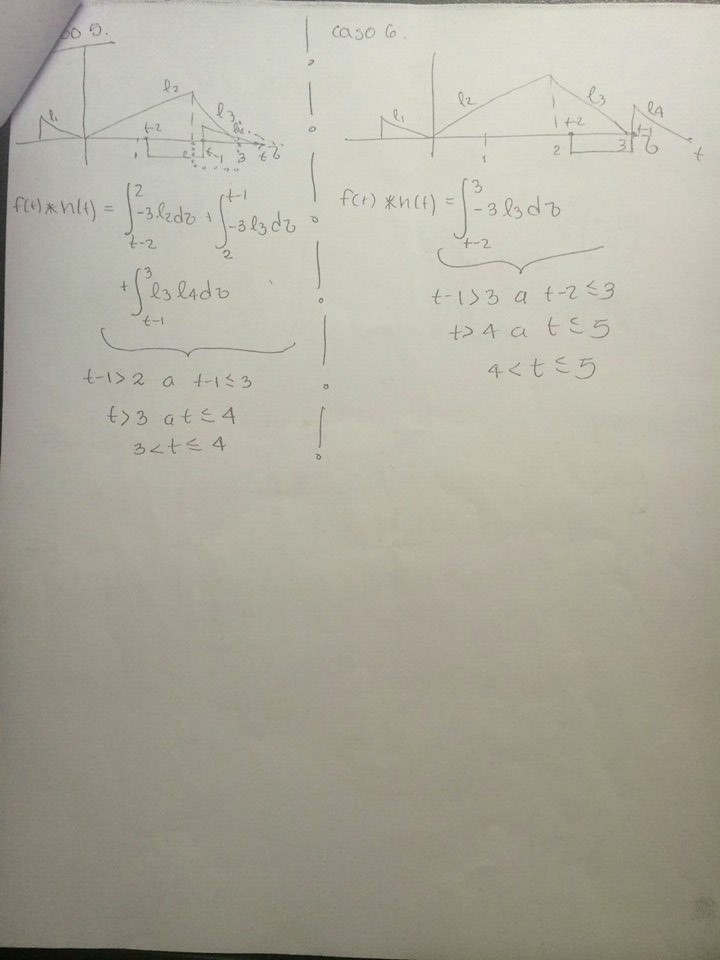 so 5.
l1
l2
l3
l4
t-2
1
2
t-1
3
t
τ
f(t)*h(t) = ∫_{t-2}^{2} -3l2dτ + ∫_{2}^{t-1} -3l3dτ
+ ∫_{t-1}^{3} l3l4dτ
t-1>2 a t-1≤3
t>3 a t≤4
3<t≤4
caso 6.
l1
l2
l3
l4
t-2
t-1
1
2
3
τ
t
f(t)*h(t) = ∫_{t-2}^{3} -3l3dτ
t-1>3 a t-2≤3
t>4 a t≤5
4<t≤5